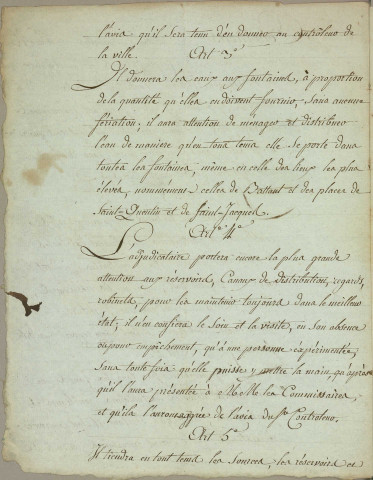 l'avis qu'il sera tenu d'en donner au contrôleur de
la ville.
Art. 3e
Il donnera les eaux aux fontaines, à proportion
de la quantité qu'elles en doivent fournir, sans aucune
il aura attention de ménager et distribuer
l'eau de manière qu'en tous tems elle se porte dans
toutes les fontaines, même en celle des lieux les plus
élevés, nommément celles de Battant et des places de
Saint-Quentin et de Saint-Jacques.
Art. 4e
L'adjudicataire portera encore la plus grande
attention aux réservoirs, Canaux de distribution, regards,
robinets, pour les maintenir toujours dans le meilleur
état; il n'en confiera le soin et la visite, en son absence
ou pour empêchement, qu'à une personne expérimentée,
sans toute fois qu'elle puisse y mettre la main, qu'après
qu'il l'aura présentée à MM. les Commissaires,
et qu'ils l'auront de l'avis du Sr Controleur.
Art. 5e
Il tiendra en tout tems les sources, les réservoirs et